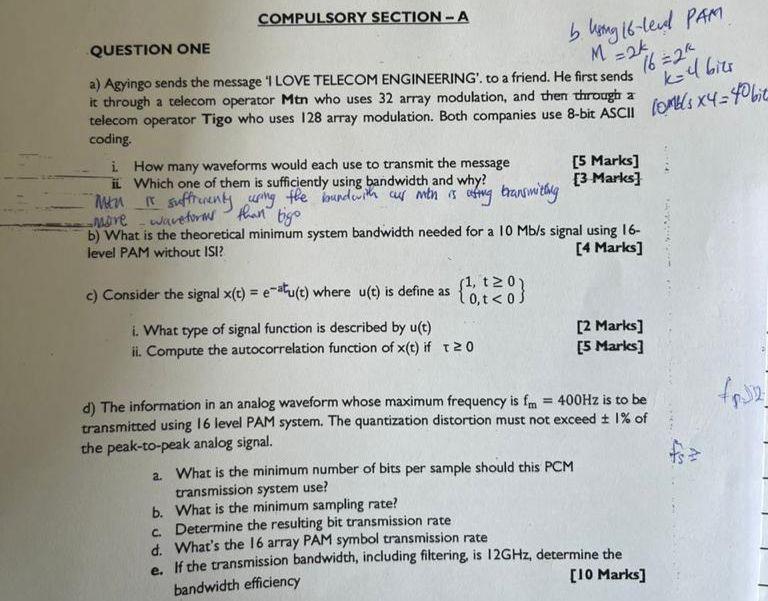 COMPULSORY SECTION – A
b using 16-level PAM
M = 2^k
16 = 2^k
k = 4 bits
10Mb/s x 4 = 40 bit
QUESTION ONE
a) Agyingo sends the message 'I LOVE TELECOM ENGINEERING'. to a friend. He first sends
it through a telecom operator Mtn who uses 32 array modulation, and then through a
telecom operator Tigo who uses 128 array modulation. Both companies use 8-bit ASCII
coding.
i. How many waveforms would each use to transmit the message [5 Marks]
ii. Which one of them is sufficiently using bandwidth and why? [3 Marks]
Mtn is using the mtn is transmitting
more waveforms than tigo
b) What is the theoretical minimum system bandwidth needed for a 10 Mb/s signal using 16-
level PAM without ISI? [4 Marks]
c) Consider the signal x(t) = e^-at u(t) where u(t) is define as {1, t ≥ 0
0, t < 0}
i. What type of signal function is described by u(t) [2 Marks]
ii. Compute the autocorrelation function of x(t) if τ ≥ 0 [5 Marks]
d) The information in an analog waveform whose maximum frequency is fm = 400Hz is to be
transmitted using 16 level PAM system. The quantization distortion must not exceed ± 1% of
the peak-to-peak analog signal.
fs ≥
a. What is the minimum number of bits per sample should this PCM
transmission system use?
b. What is the minimum sampling rate?
c. Determine the resulting bit transmission rate
d. What's the 16 array PAM symbol transmission rate
e. If the transmission bandwidth, including filtering, is 12GHz, determine the
bandwidth efficiency [10 Marks]